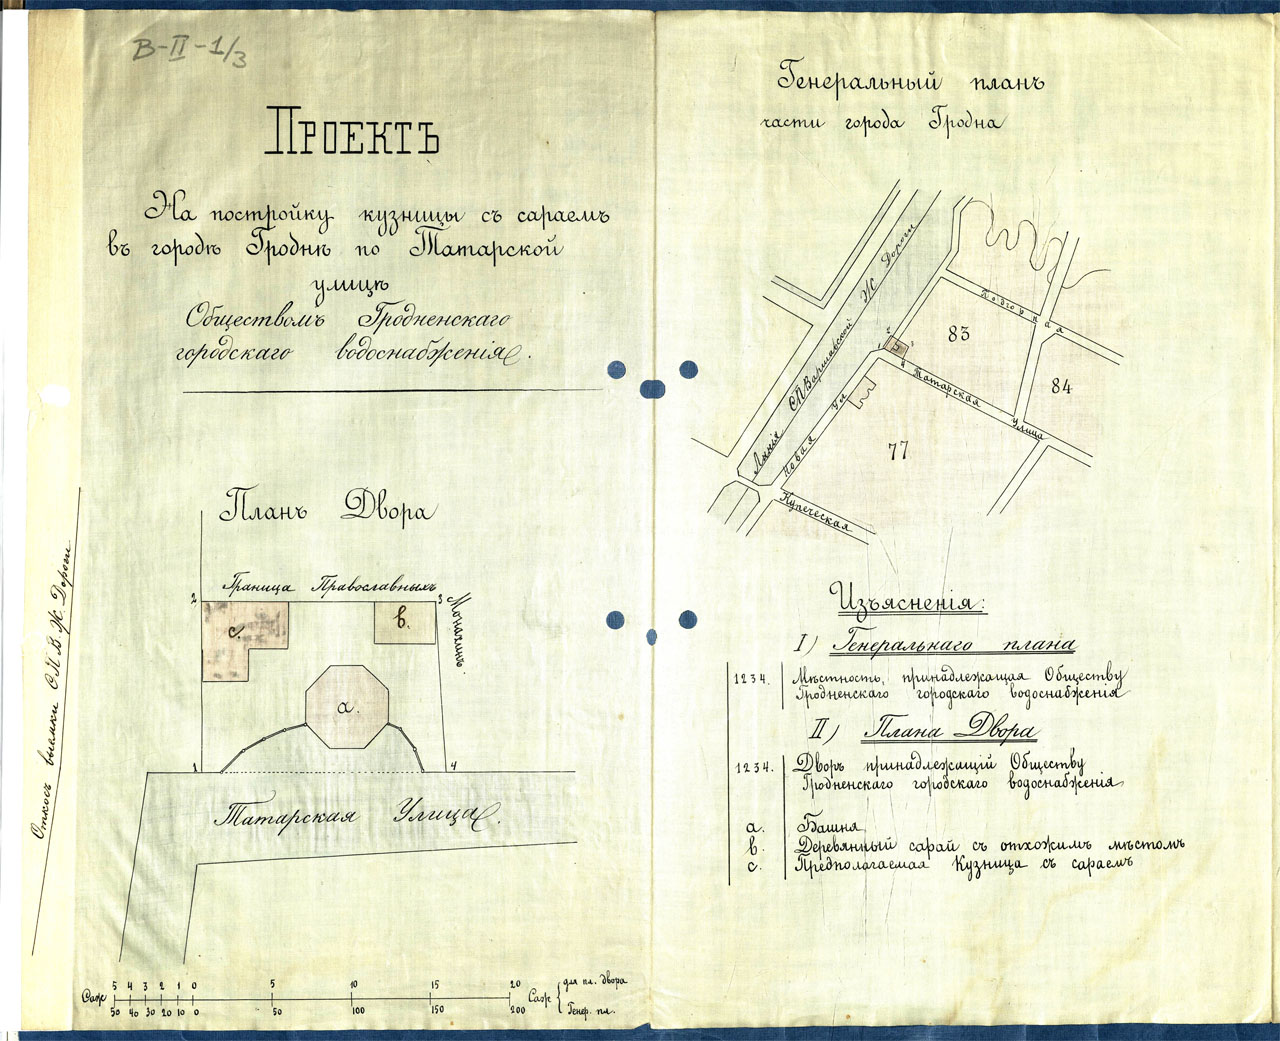 В-II-1/3
Проектъ
На постройку кузницы съ сараемъ
въ городѣ Гроднѣ по Татарской
улицѣ
Обществомъ Гродненскаго
городскаго водоснабженія.
Планъ Двора
Граница Православныхъ
Монахинь.
2
3
с.
в.
а.
1
4
Татарская Улица.
Откосъ выемки С.П.В.Ж. Дороги
Саж
5 4 3 2 1 0 5 10 15 20
50 40 30 20 10 0 50 100 150 200
Саж
для пл. двора
Генер. пл.
Генеральный планъ
части города Гродна
Линія С.П. Варшавской Ж Дороги
Новая Ул
Подгодная
Татарская улица
Купеческая
83
84
77
1
2
3
4
Изъясненія:
I) Генеральнаго плана
1234. Мѣстность, принадлежащая Обществу
Гродненскаго городскаго водоснабженія
II) Плана Двора
1234. Дворъ принадлежащій Обществу
Гродненскаго городскаго водоснабженія
а. Башня
в. Деревянный сарай съ отхожимъ мѣстомъ
с. Предполагаемая Кузница съ сараемъ